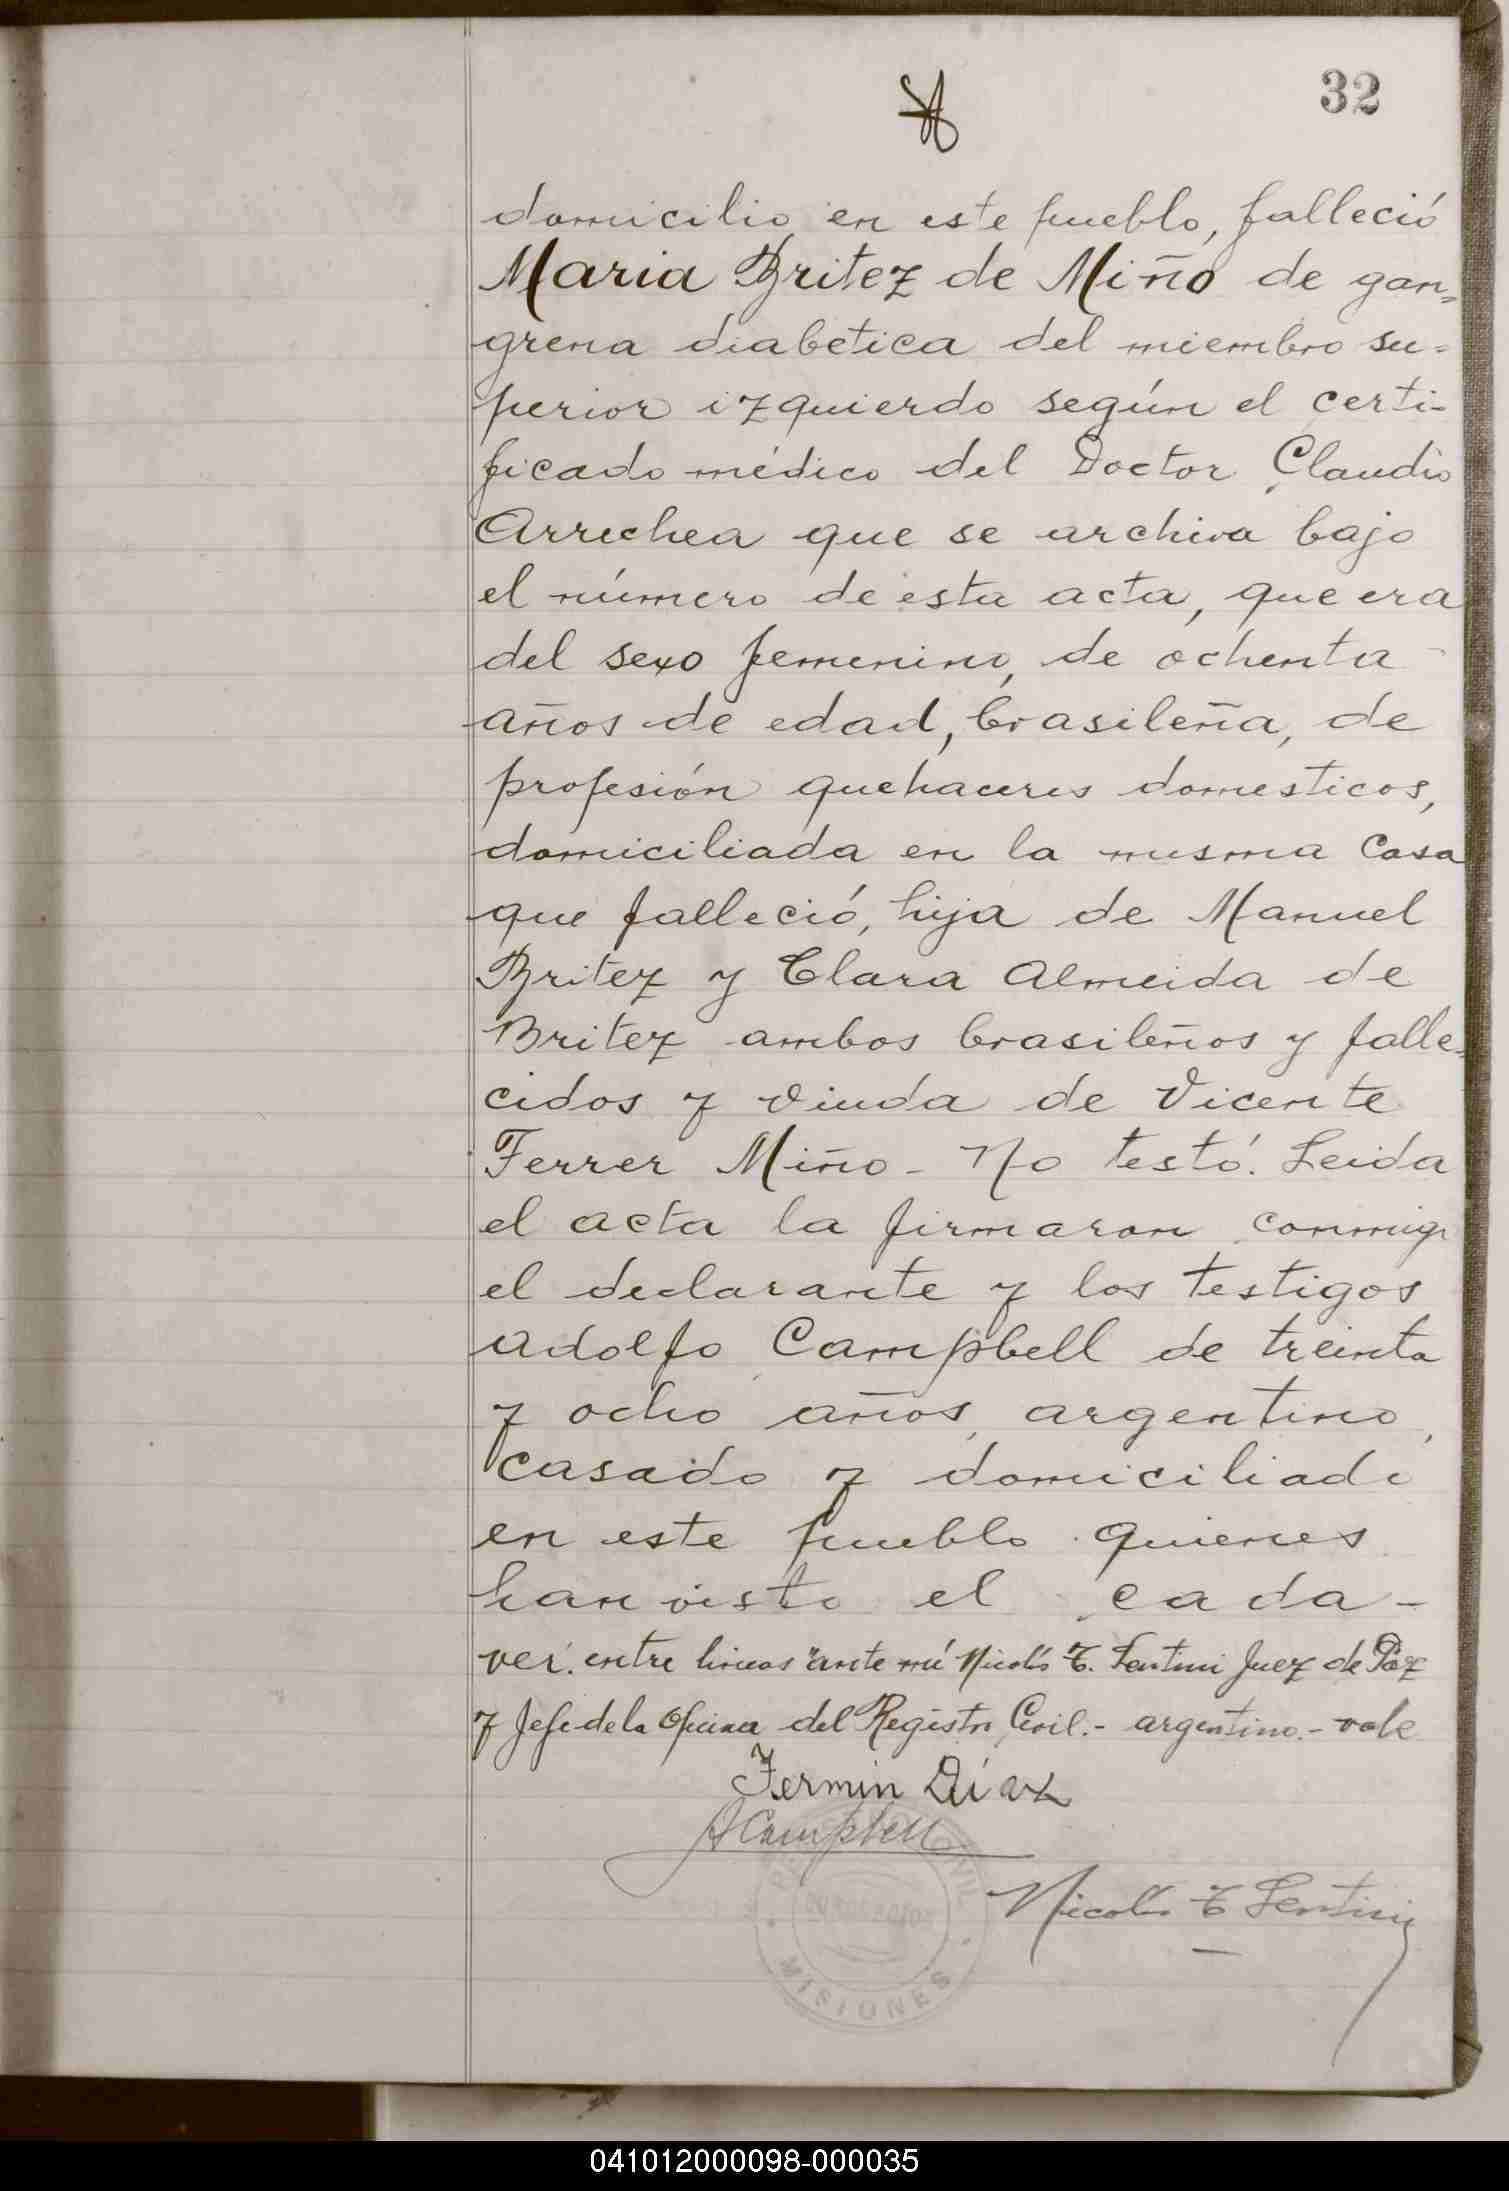 32
domicilio en este pueblo, falleció
Maria Britez de Miño de gan=
grena diabetica del miembro su-
perior izquierdo según el certi-
ficado médico del Doctor Claudio
Arrechea que se archiva bajo
el número de esta acta, que era
del sexo femenino, de ochenta
años de edad, brasileña, de
profesión quehaceres domesticos,
domiciliada en la misma casa
que falleció, hija de Manuel
Britez y Clara Almeida de
Britez ambos brasileños y falle=
cidos y viuda de Vicente
Ferrer Miño - No testó. Leida
el acta la firmaron conmigo
el declarante y los testigos
Adolfo Campbell de treinta
y ocho años, argentino,
casado y domiciliado
en este pueblo quienes
han visto el cada-
ver. entre lineas "ante mí Nicolás T. Lentini Juez de Paz
y Jefe de la Oficina del Registro Civil.- argentino.- vale
Fermin Diaz
A Campbell
Nicolás T Lentini
CIVIL
MISIONES
041012000098-000035